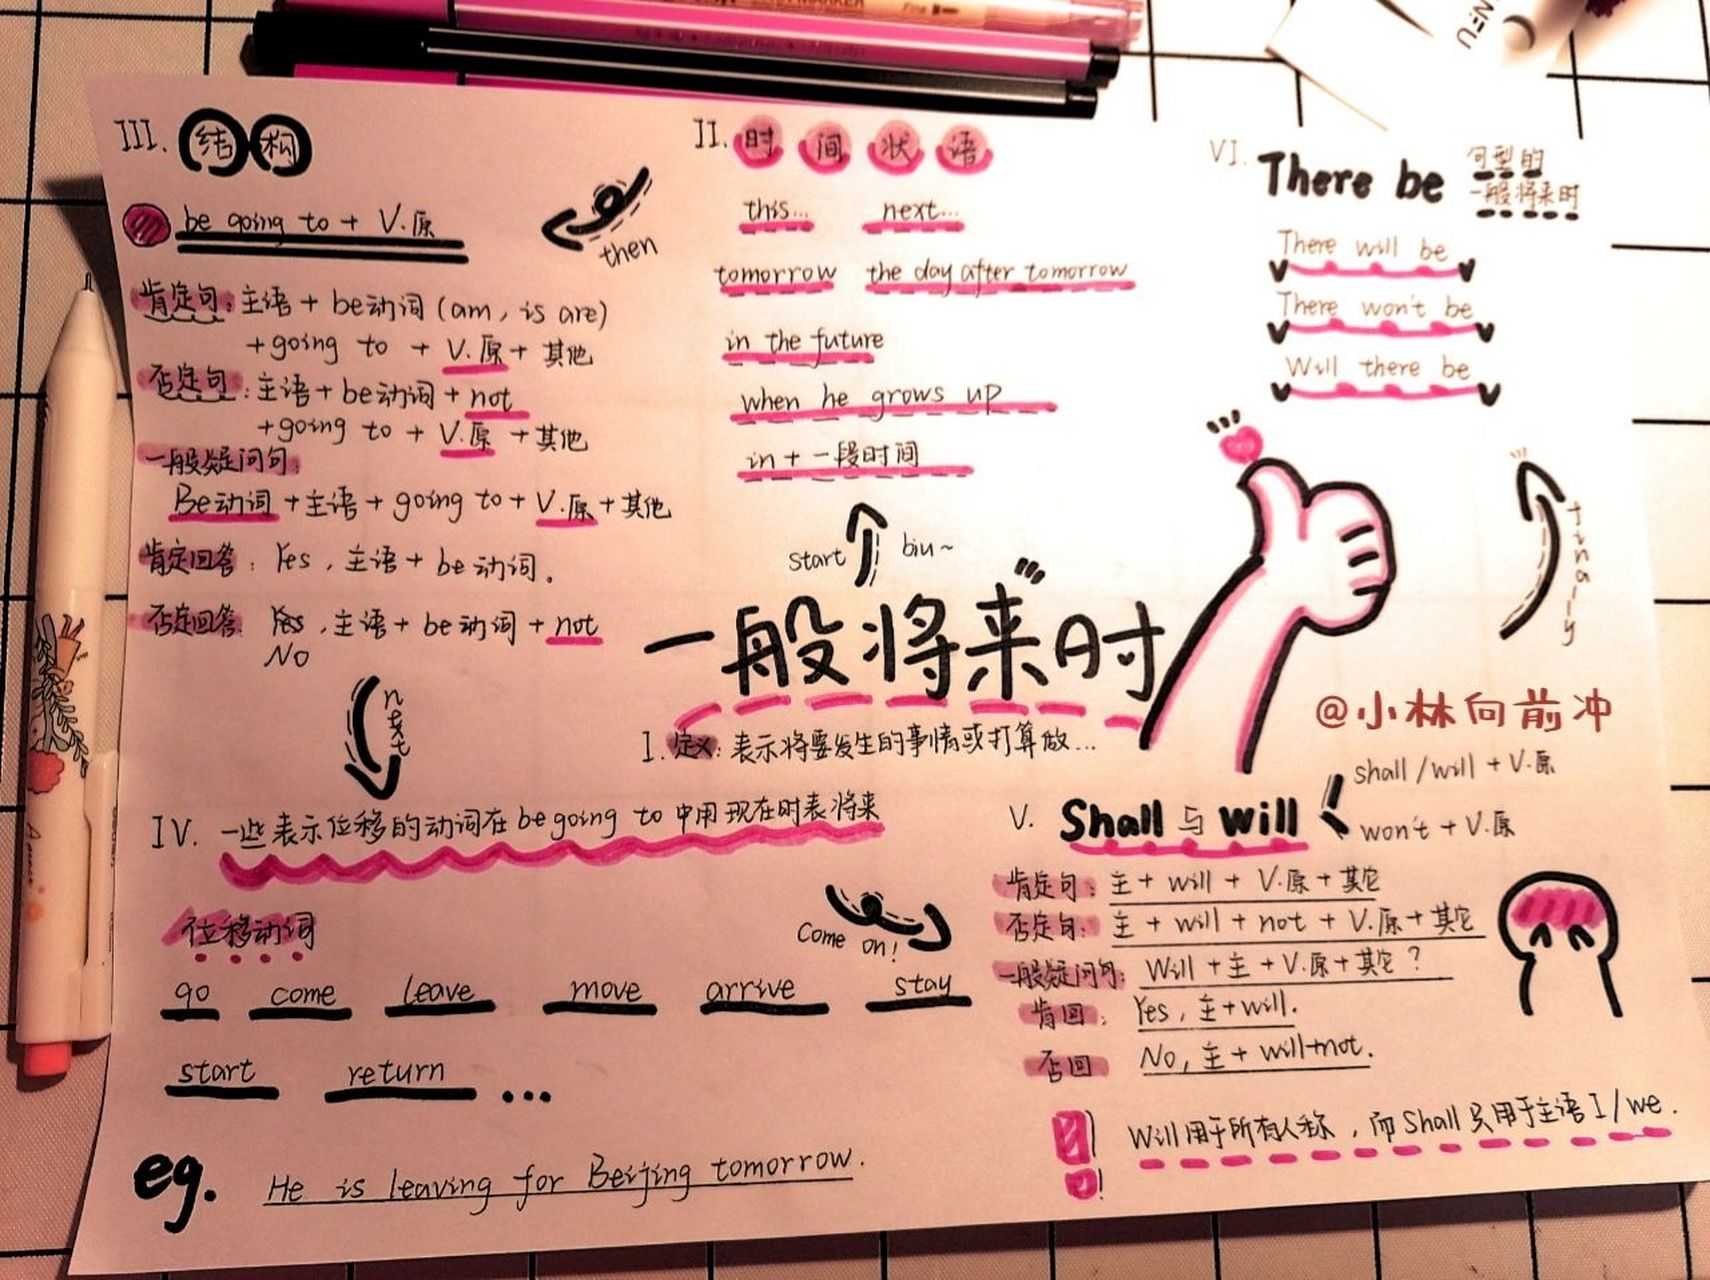 一般将来时
start biu~
I. 定义: 表示将要发生的事情或打算做...
II. 时间状语
this... next...
tomorrow the day after tomorrow
in the future
when he grows up
in + 一段时间
then
III. 结构
be going to + V.原
肯定句: 主语 + be动词 (am, is are)
+ going to + V.原 + 其他
否定句: 主语 + be动词 + not
+ going to + V.原 + 其他
一般疑问句:
Be动词 + 主语 + going to + V.原 + 其他
肯定回答: Yes, 主语 + be动词。
否定回答: Yes, 主语 + be动词 + not
No
next
IV. 一些表示位移的动词在be going to 中用现在时表将来
位移动词
go come leave move arrive stay
start return ...
eg. He is leaving for Beijing tomorrow.
Come on!
V. Shall 与 will
shall / will + V.原
won't + V.原
肯定句: 主 + will + V.原 + 其它
否定句: 主 + will + not + V.原 + 其它
一般疑问句: Will + 主 + V.原 + 其它?
肯回: Yes, 主 + will.
否回 No, 主 + will+not.
Will用于所有人称, 而Shall只用于主语 I / we.
finally
VI. There be 句型的
一般将来时
There will be
There won't be
Will there be
@小林向前冲